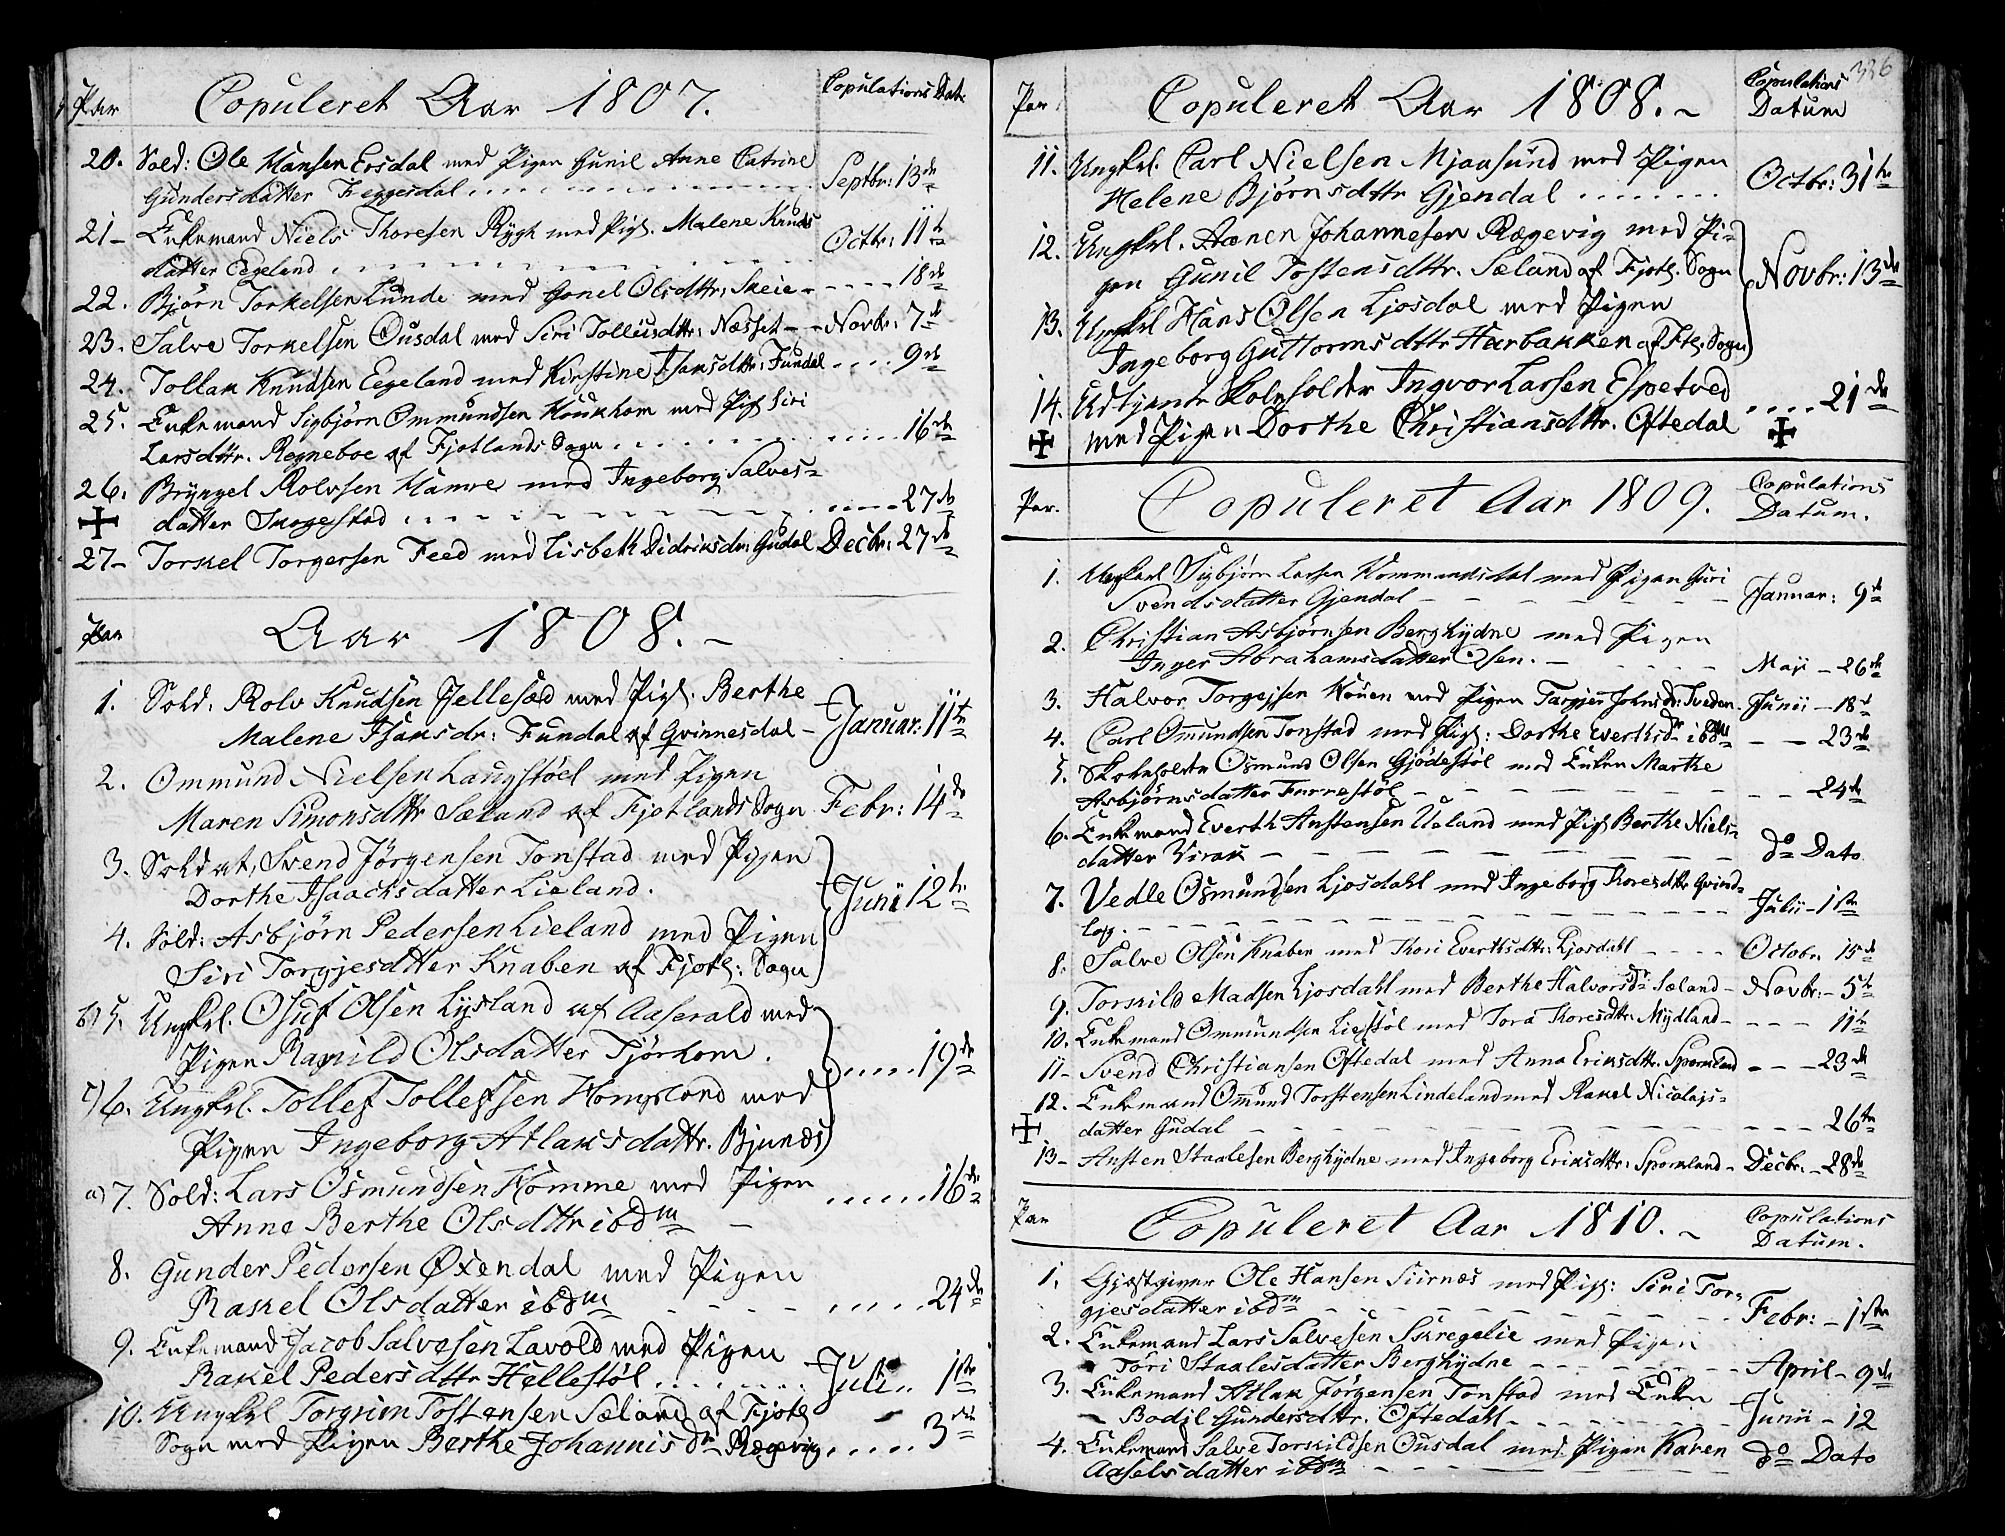 Par Copuleret Aar 1807. Copulations Dat.
20. Sold: Ole Hansen Ersdal med Pigen Gunil Anne Catrine
Gundersdatter Feggesdal Septbr: 13de
21- Enkemand Niels Thoresen Rygh med Pig. Malene Knuds
datter Eegeland Octbr: 11te
22. Björn Torkelsen Lunde med Gonel Olsdttr: Skeie - 18de
23. Salve Torkelsen Ousdal med Siri Tollüsdttr: Næsset - Novbr: 7de
24. Tollak Knudsen Eegeland med Kirstine Isaksdttr: Fundal 9de
25. Enkemand Sigbjörn Ommundsen Kouknom med Pig. Siri
Larsdttr. Regneboe af Fjotlands Sogn 16de
26. Bryngel Rolvsen Hamre med Ingeborg Salves=
datter Skregestad 27de
27- Torkel Torgersen Feed med Lisbeth Didriksdr. Gudal Decbr: 27de
Par Aar 1808.
1. Sold: Rolv Knudsen Jellesæd med Pig. Berthe
Malene Isaksdr: Fundal af Qvinnesdal - Januar: 11te
2. Ommund Nielsen Laugstöel med Pigen
Maren Simonsdttr Sæland af Fjotlands Sogn Febr: 14de
3. Soldat, Svend Jörgensen Tonstad med Pigen
Dorthe Isaachsdatter Lieland.
4. Sold: Asbjörn Pedersen Lieland med Pigen
Siri Torgjesdtter Knaben af Fjotl: Sogn Junii 12te
b) 5. Ungkrl. Osuf Olsen Lysland af Aaserald med
Pigen Ragnild Olsdatter Tjörhom.
c) 6. Ungkrl. Tollef Tollefsen Homsland med
Pigen Ingeborg Atlaksdattr. Bjunæs 19de
a) 7. Sold: Lars Osmundsen Homme med Pigen
Anne Berthe Olsdttr ibdm - 16de
8. Gunder Pedersen Öxendal med Pigen
Rakel Olsdatter ibdm 24de
9. Enkemand Jacob Salvesen Lavold med Pigen
Rakel Pedersdttr Hellestöl Juli 1ste
10. Ungkrl Torgrim Tostensen Sæland af Fjotl
Sogn med Pigen Berthe Johannis dr Rægevig 3die
336
Par. Copuleret Aar 1808. Copulations Datum
11. Ungkrl. Carl Nielsen Mjaasund med Pigen
Helene Björnsdttr Gjendal Octbr: 31te
12. Ungkrl. Aanen Johannesen Rægevig med Pi-
gen Gunil Tostensdttr. Sæland af Fjotl. Sogn
13. Ungkrl Hans Olsen Ljosdal med Pigen
Ingeborg Guttormsdttr Harbakken af Ftl. Sogn Novbr: 13de
14. Udtjente Skoleholder Ingvor Larsen Espetved
med Pigen Dorthe Christiansdttr. Oftedal 21de
Par. Copuleret Aar 1809. Copulations Datum.
1. Ungkarl Sigbjörn Larsen Kommandsdal med Pigen Guri
Svendsdatter Gjendal Januar: 9de
2. Christian Asbjörnsen Berghydne med Pigen
Inger Abrahamsdatter Osen. Maji - 26de
3. Halvor Torgejsen Kouen med Pigen Targjer Johnsdr: Tveden Junii - 18de
4. Carl Omundsen Tonstad med Pig: Dorthe Evertsdr ibdm 23de
5. Skoleholder Osmund Olsen Gjödestöl med Enken Marthe
Asbjörnsdatter Furrestöl 24de
6. Enkemand Everth Anstensen Ueland med Pig Berthe Niels=
datter Virak do Dato
7. Vedle Osmundsen Ljosdahl med Ingeborg Thoresdttr Gvind=
log. Julii - 1ste
8. Salve Olsen Knaben med Thori Everthsdttr: Ljosdahl Octobr: 15de
9. Torkild Madsen Ljosdahl med Berthe Halvorsdr Sæland - Novbr: - 5te
10. Enkemand Ommundsen Liestöl med Tora Thoresdttr: Mydland 11te
11- Svend Christiansen Oftedal med Anna Eriksdttr. Spomland 23de
12. Enkemand Omund Torstensen Lindeland med Rakel Nicolajs=
datter Gudal 26de
13- Ansten Staalesen Berghydne med Ingeborg Eriksdttr: Spomland - Decbr: - 28de
Par Copuleret Aar 1810. Copulations Datum.
1. Gjæstgiver Ole Hansen Siirnæs med Pig: Siri Tor=
gjesdatter ibdm Febr: - 1ste
2. Enkemand Lars Salvesen Skregelie med Pigen
Tori Staalesdatter Berghydne April - 9de
3. Enkemand Atlak Jörgensen Tonstad med Enken
Bodil Gundersdttr. Oftedahl Junii - 12
4. Enkemand Salve Torkildsen Ousdal med Pigen Karen
Aaselsdatter ibdm do Dato